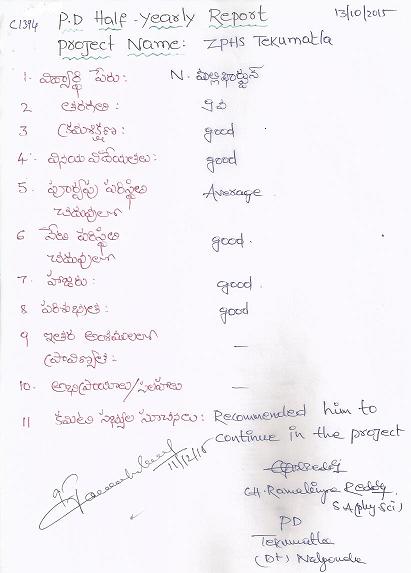 C1394 P.D Half-yearly Report 13/10/2015
project Name: ZPHS Tekumatla
1. విద్యార్థి పేరు: N. మల్లికార్జున్
2 తరగతి :
3 క్రమశిక్షణ : good
4. వినయ విధేయతలు: good
5. పూర్వపు పరిస్థితి Average
చదువులలో
6 నేటి పరిస్థితి good.
చదువులలో
7. హాజరు: good.
8 పరిశుభ్రత : good
9 ఇతర అంశములలో —
ప్రావీణ్యత :
10. అభిప్రాయాలు/సలహాలు —
11 కమిటీ సభ్యుల సూచనలు: Recommended him to
continue in the project
11/12/15
CH. Ramalinga Reddy
S A (phy. Sci)
PD
Tekumatla
(Dt) Nalgonda